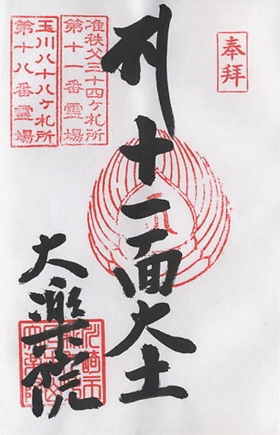 奉拝
十一面大士
准秩父三十四ヶ札所
第十一番霊場
玉川八十八ヶ札所
第十八番霊場
大楽院